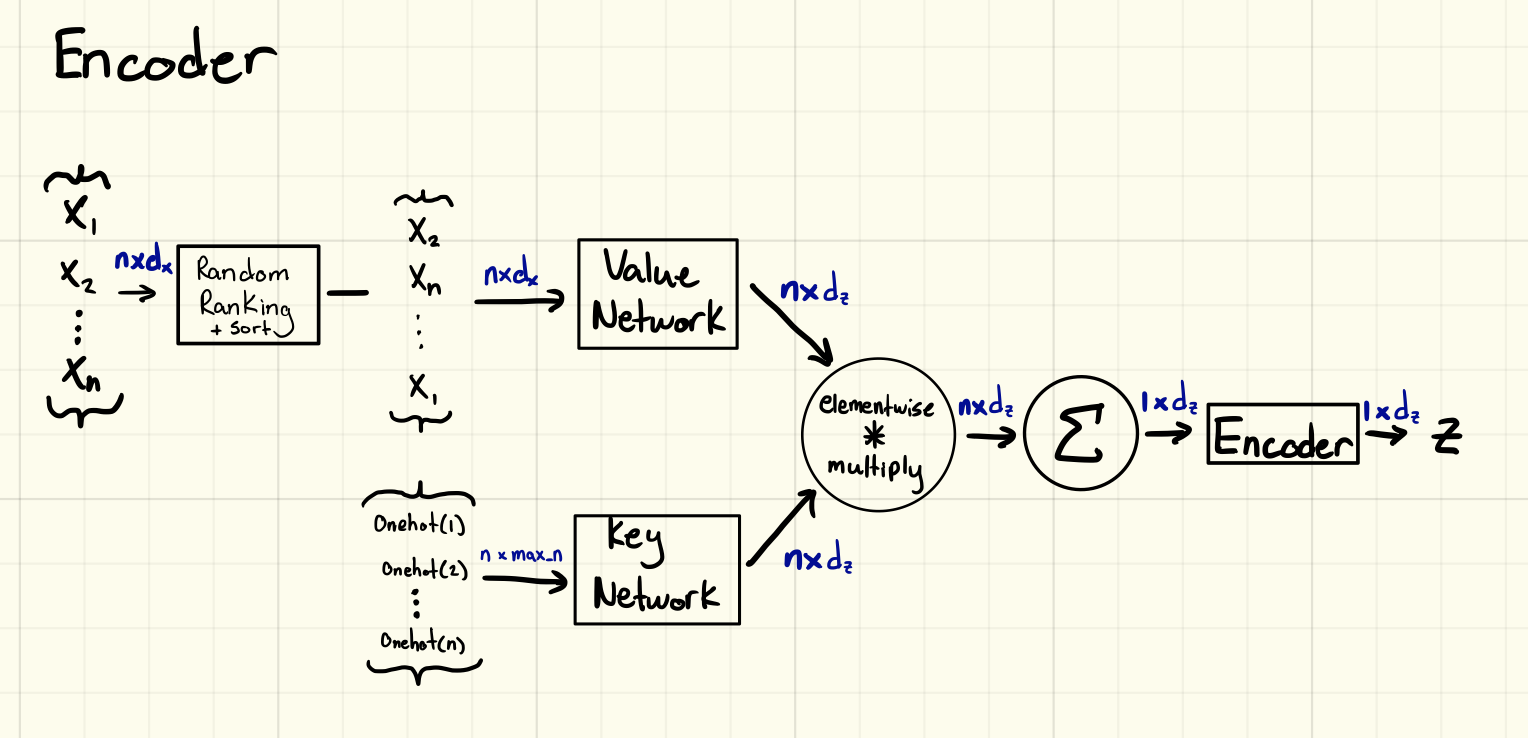 Encoder
X₁
X₂
⋮
Xₙ
n×dₓ
Random
Ranking
+ sort
X₂
Xₙ
⋮
X₁
n×dₓ
Value
Network
n×d_z
Onehot(1)
Onehot(2)
⋮
Onehot(n)
n × max_n
Key
Network
n×d_z
elementwise
*
multiply
n×d_z
Σ
1×d_z
Encoder
1×d_z
z